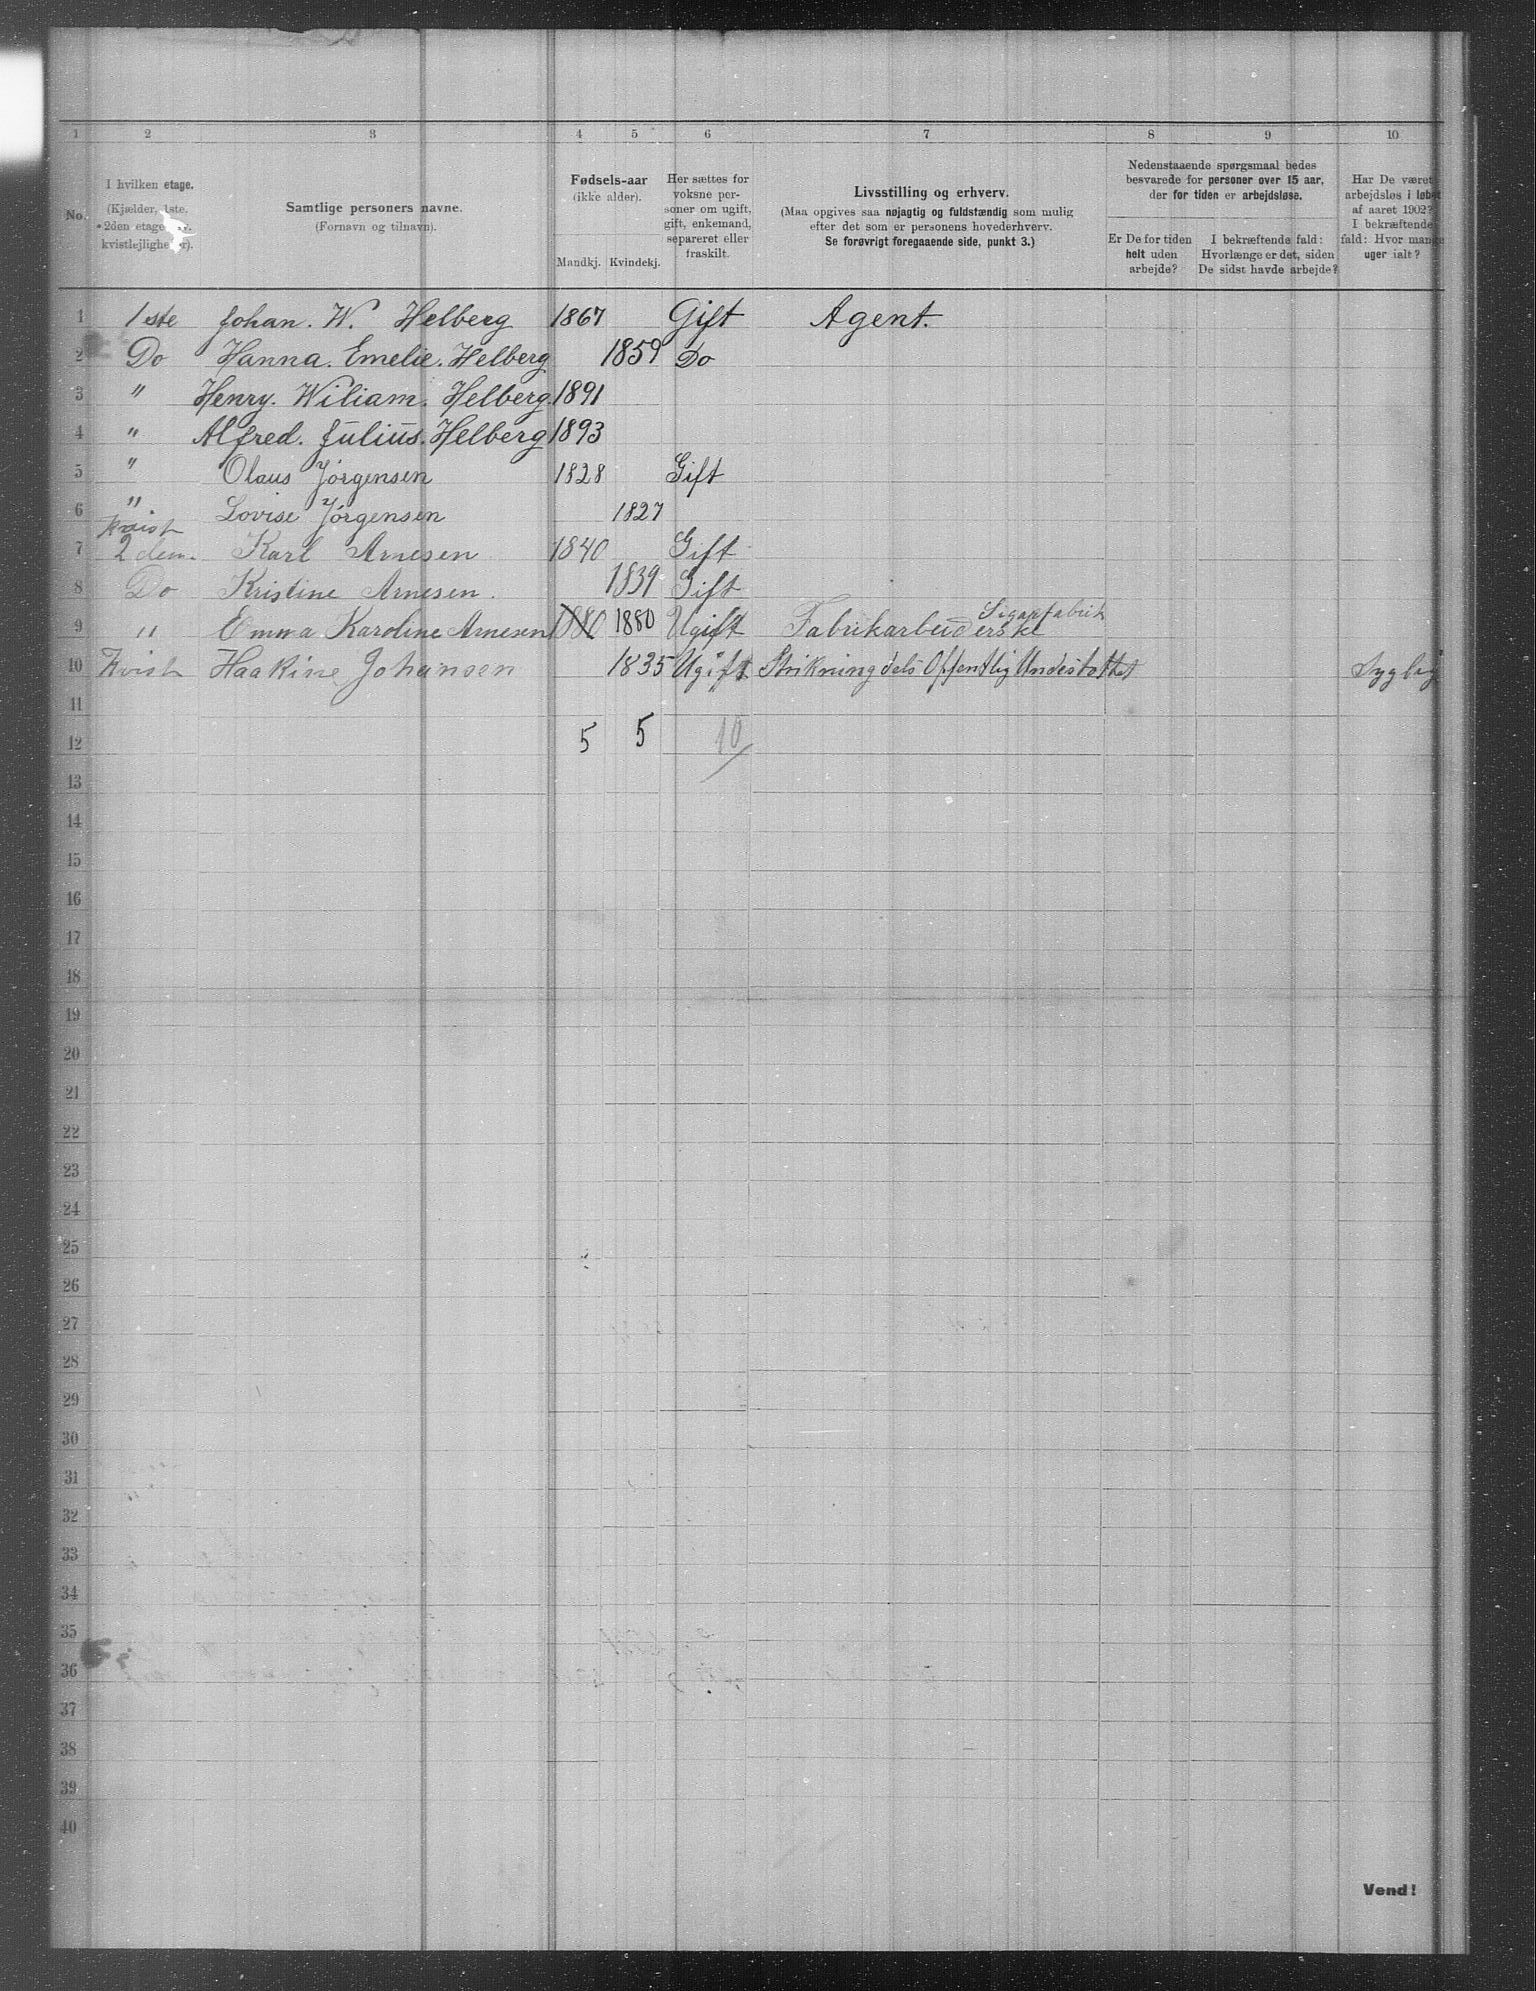 1 2 3 4 5 6 7 8 9 10
No.
I hvilken etage.
(Kjælder, 1ste.
2den etage
kvistlejligheder).
Samtlige personers navne.
(Fornavn og tilnavn).
Fødsels-aar
(ikke alder).
Mandkj. Kvindekj.
Her sættes for
voksne per-
soner om ugift,
gift, enkemand,
separeret eller
fraskilt.
Livsstilling og erhverv.
(Maa opgives saa nøjagtig og fuldstændig som mulig
efter det som er personens hovederhverv.
Se forøvrigt foregaaende side, punkt 3.)
Nedenstaaende spørgsmaal bedes
besvarede for personer over 15 aar,
der for tiden er arbejdsløse.
Er De for tiden
helt uden
arbejde?
I bekræftende fald:
Hvorlænge er det, siden
De sidst havde arbejde?
Har De været
arbejdsløs i løbet
af aaret 1902?
I bekræftende
fald: Hvor mange
uger ialt?
1 1ste Johan. W. Helberg 1867 Gift Agent.
2 Do Hanna. Emelie. Helberg 1859 Do
3 " Henry. Wiliam. Helberg. 1891
4 " Alfred. Julius. Helberg 1893
5 " Olaus Jörgensen 1828 Gift
6 " Lovise Jörgensen 1827
Kvist
7 2 den. Karl Arnesen 1840 Gift
8 Do Kristine Arnesen. 1839 Gift
Sigarfabrik
9 " Emma Karoline Arnesen 1880 1880 Ugift Fabrikarbeiderske
10 Kvist Haakine Johansen 1835 Ugift Strikning dels Offentlig Undestøttet Syglig
11
12 5 5 10
13
14
15
16
17
18
19
20
21
22
23
24
25
26
27
28
29
30
31
32
33
34
35
36
37
38
39
40
Vend!